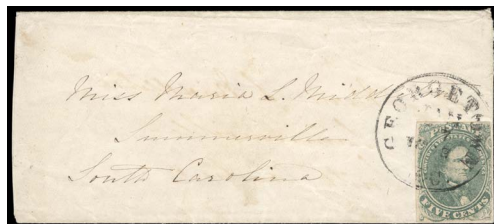 Miss Maria L. Midd
Summerville
South Carolina
GEORGET
FIVE CENTS